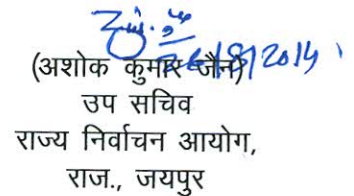 26/8/2014
(अशोक कुमार जैन)
उप सचिव
राज्य निर्वाचन आयोग,
राज., जयपुर